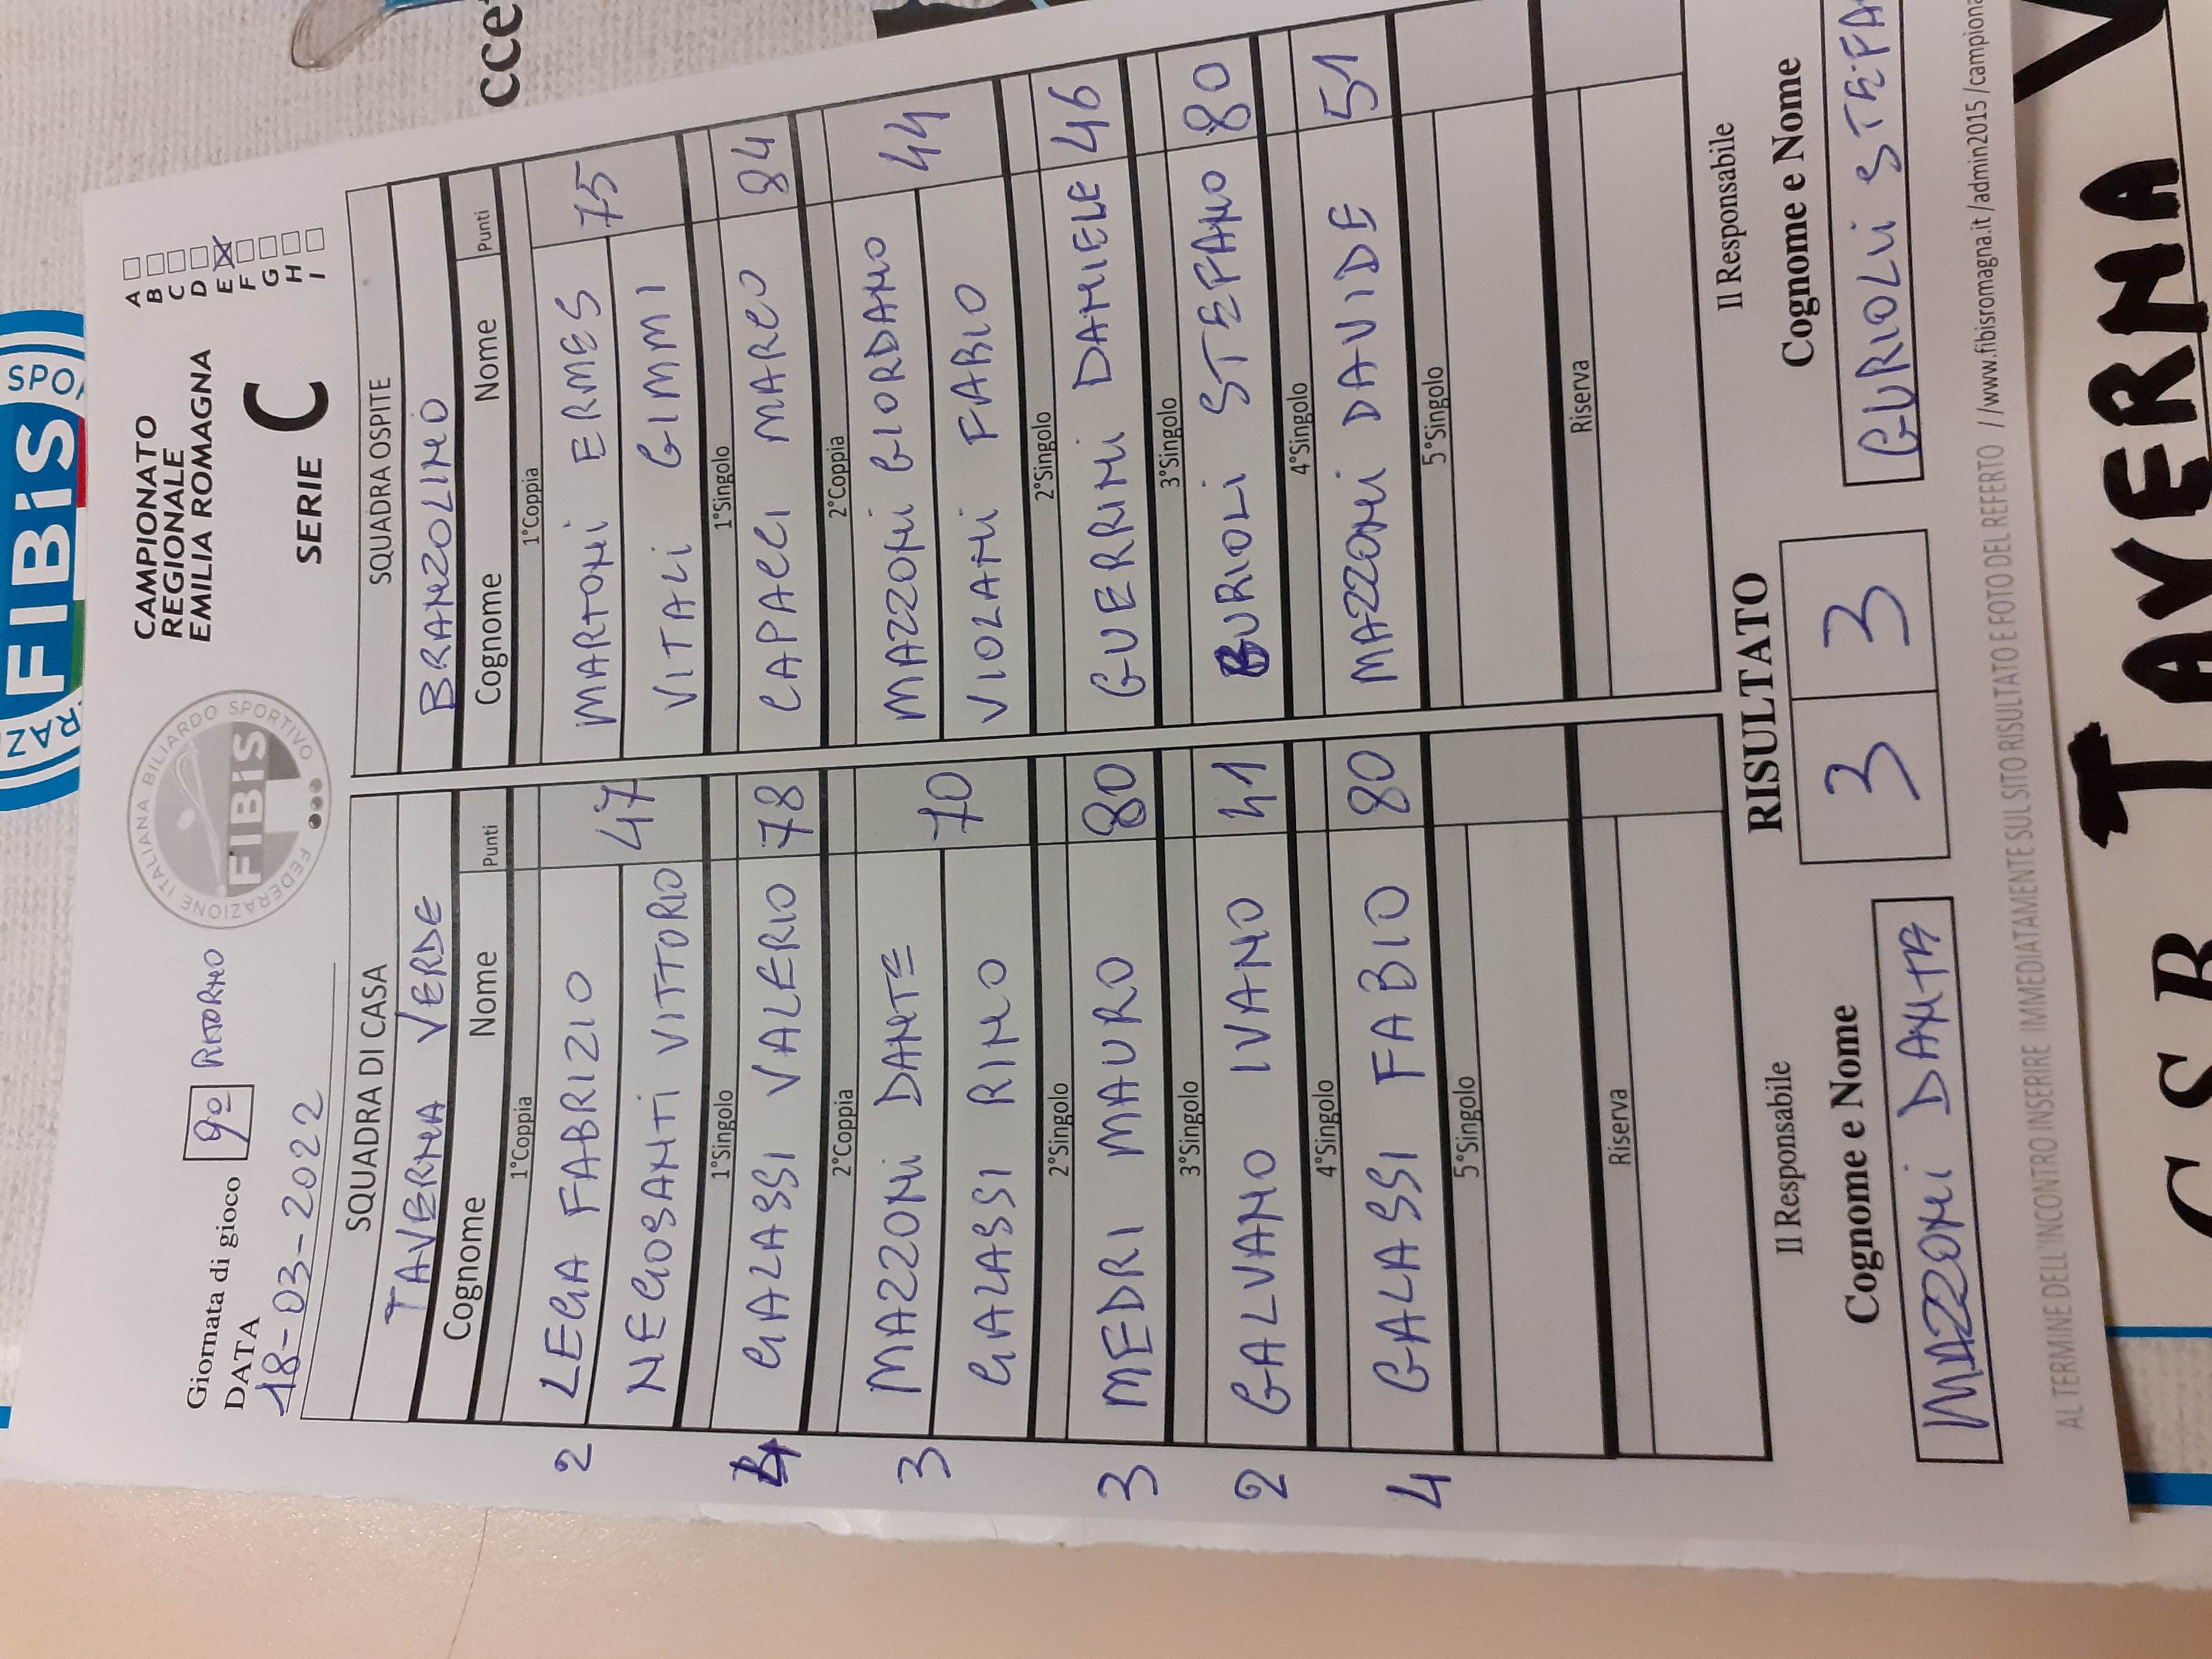 FIBiS
SPO
CAMPIONATO
REGIONALE
EMILIA ROMAGNA
SERIE C
A
B
C
D
E
F
G
H
I
FEDERAZIONE ITALIANA BILIARDO SPORTIVO
FIBiS
Giornata di gioco 9° RITORNO
DATA
18-03-2022
SQUADRA DI CASA
TAVERNA VERDE
Cognome Nome Punti
1°Coppia
LEGA FABRIZIO
NEGOSANTI VITTORIO 47
1°Singolo
GALASSI VALERIO 78
2°Coppia
MAZZONI DANTE
GALASSI RINO 70
2°Singolo
MEDRI MAURO 80
3°Singolo
GALVANO IVANO 41
4°Singolo
GALASSI FABIO 80
5°Singolo
Riserva
2
4
3
3
2
4
SQUADRA OSPITE
BRANZOLINO
Cognome Nome Punti
1°Coppia
MARTONI ERMES 75
VITALI GIMMI
1°Singolo
CAPACCI MARCO 84
2°Coppia
MAZZONI GIORDANO 44
VIOLANI FABIO
2°Singolo
GUERRINI DANIELE 46
3°Singolo
GURIOLI STEFANO 80
4°Singolo
MAZZONI DAVIDE 51
5°Singolo
Riserva
RISULTATO
3 3
Il Responsabile
Cognome e Nome
MAZZONI DANTE
Il Responsabile
Cognome e Nome
GURIOLI STEFA
AL TERMINE DELL'INCONTRO INSERIRE IMMEDIATAMENTE SUL SITO RISULTATO E FOTO DEL REFERTO //www.fibisromagna.it/admin2015/campiona
CSB TAVERNA V